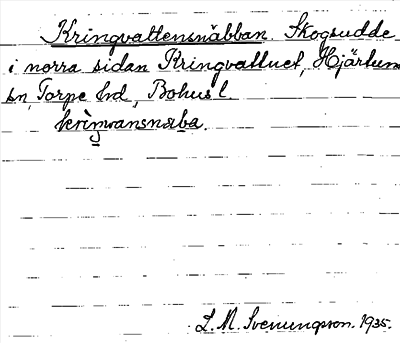 Kringvattensnäbban. Skogsudde
i norra sidan Kringvattnet, Hjärtum
sn, Torpe hd, Bohusl.
krìṇvansnaba.
L. M. Svenungsson. 1935.